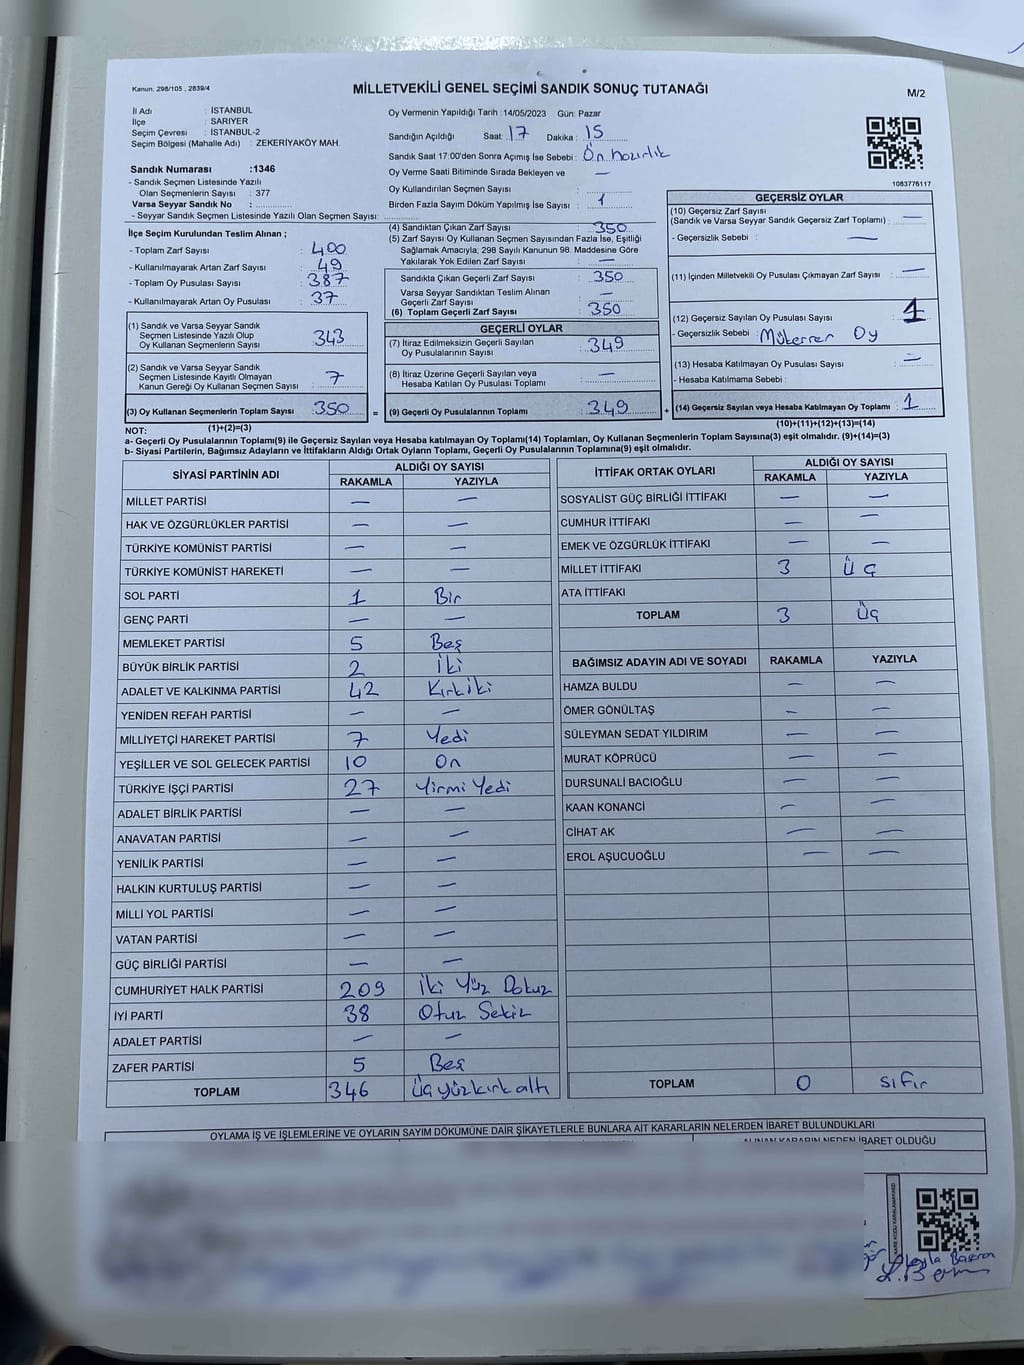 Kanun, 298/105 , 2839/4
MİLLETVEKİLİ GENEL SEÇİMİ SANDIK SONUÇ TUTANAĞI
M/2
İl Adı : İSTANBUL
İlçe : SARIYER
Seçim Çevresi : İSTANBUL-2
Seçim Bölgesi (Mahalle Adı) : ZEKERİYAKÖY MAH.
Sandık Numarası :1346
- Sandık Seçmen Listesinde Yazılı
Olan Seçmenlerin Sayısı : 377
Varsa Seyyar Sandık No :
- Seyyar Sandık Seçmen Listesinde Yazılı Olan Seçmen Sayısı:
Oy Vermenin Yapıldığı Tarih :14/05/2023 Gün: Pazar
Sandığın Açıldığı Saat: 17 Dakika : 15
Sandık Saat 17:00'den Sonra Açımış İse Sebebi : Ön hazırlık
Oy Verme Saati Bitiminde Sırada Bekleyen ve —
Oy Kullandırılan Seçmen Sayısı :
Birden Fazla Sayım Döküm Yapılmış İse Sayısı : 1
1083776117
İlçe Seçim Kurulundan Teslim Alınan ;
- Toplam Zarf Sayısı : 400
- Kullanılmayarak Artan Zarf Sayısı : 49
- Toplam Oy Pusulası Sayısı : 387
- Kullanılmayarak Artan Oy Pusulası : 37
(1) Sandık ve Varsa Seyyar Sandık
Seçmen Listesinde Yazılı Olup
Oy Kullanan Seçmenlerin Sayısı 343
(2) Sandık ve Varsa Seyyar Sandık
Seçmen Listesinde Kayıtlı Olmayan
Kanun Gereği Oy Kullanan Seçmen Sayısı 7
(3) Oy Kullanan Seçmenlerin Toplam Sayısı 350 =
(1)+(2)=(3)
(4) Sandıktan Çıkan Zarf Sayısı : 350
(5) Zarf Sayısı Oy Kullanan Seçmen Sayısından Fazla İse, Eşitliği
Sağlamak Amacıyla, 298 Sayılı Kanunun 98. Maddesine Göre
Yakılarak Yok Edilen Zarf Sayısı : —
Sandıkta Çıkan Geçerli Zarf Sayısı : 350
Varsa Seyyar Sandıktan Teslim Alınan
Geçerli Zarf Sayısı : —
(6) Toplam Geçerli Zarf Sayısı : 350
GEÇERLİ OYLAR
(7) İtiraz Edilmeksizin Geçerli Sayılan
Oy Pusulalarının Sayısı : 349
(8) İtiraz Üzerine Geçerli Sayılan veya
Hesaba Katılan Oy Pusulası Toplamı : —
(9) Geçerli Oy Pusulalarının Toplamı 349 +
GEÇERSİZ OYLAR
(10) Geçersiz Zarf Sayısı
(Sandık ve Varsa Seyyar Sandık Geçersiz Zarf Toplamı) : —
- Geçersizlik Sebebi : —
(11) İçinden Milletvekili Oy Pusulası Çıkmayan Zarf Sayısı : —
(12) Geçersiz Sayılan Oy Pusulası Sayısı : 1
- Geçersizlik Sebebi : Mükerrer Oy
(13) Hesaba Katılmayan Oy Pusulası Sayısı : —
- Hesaba Katılmama Sebebi :
(14) Geçersiz Sayılan veya Hesaba Katılmayan Oy Toplamı : 1
(10)+(11)+(12)+(13)=(14)
NOT:
a- Geçerli Oy Pusulalarının Toplamı(9) ile Geçersiz Sayılan veya Hesaba katılmayan Oy Toplamı(14) Toplamları, Oy Kullanan Seçmenlerin Toplam Sayısına(3) eşit olmalıdır. (9)+(14)=(3)
b- Siyasi Partilerin, Bağımsız Adayların ve İttifakların Aldığı Ortak Oyların Toplamı, Geçerli Oy Pusulalarının Toplamına(9) eşit olmalıdır.
SİYASİ PARTİNİN ADI ALDIĞI OY SAYISI
RAKAMLA YAZIYLA
MİLLET PARTİSİ — —
HAK VE ÖZGÜRLÜKLER PARTİSİ — —
TÜRKİYE KOMÜNİST PARTİSİ — —
TÜRKİYE KOMÜNİST HAREKETİ — —
SOL PARTİ 1 Bir
GENÇ PARTİ — —
MEMLEKET PARTİSİ 5 Beş
BÜYÜK BİRLİK PARTİSİ 2 İki
ADALET VE KALKINMA PARTİSİ 42 Kırkiki
YENİDEN REFAH PARTİSİ — —
MİLLİYETÇİ HAREKET PARTİSİ 7 Yedi
YEŞİLLER VE SOL GELECEK PARTİSİ 10 On
TÜRKİYE İŞÇİ PARTİSİ 27 Yirmi Yedi
ADALET BİRLİK PARTİSİ — —
ANAVATAN PARTİSİ — —
YENİLİK PARTİSİ — —
HALKIN KURTULUŞ PARTİSİ — —
MİLLİ YOL PARTİSİ — —
VATAN PARTİSİ — —
GÜÇ BİRLİĞİ PARTİSİ — —
CUMHURİYET HALK PARTİSİ 209 İki Yüz Dokuz
İYİ PARTİ 38 Otuz Sekiz
ADALET PARTİSİ — —
ZAFER PARTİSİ 5 Beş
TOPLAM 346 üçyüzkırkaltı
İTTİFAK ORTAK OYLARI ALDIĞI OY SAYISI
RAKAMLA YAZIYLA
SOSYALİST GÜÇ BİRLİĞİ İTTİFAKI — —
CUMHUR İTTİFAKI — —
EMEK VE ÖZGÜRLÜK İTTİFAKI — —
MİLLET İTTİFAKI 3 Üç
ATA İTTİFAKI
TOPLAM 3 Üç
BAĞIMSIZ ADAYIN ADI VE SOYADI RAKAMLA YAZIYLA
HAMZA BULDU — —
ÖMER GÖNÜLTAŞ — —
SÜLEYMAN SEDAT YILDIRIM — —
MURAT KÖPRÜCÜ — —
DURSUNALİ BACIOĞLU — —
KAAN KONANCİ — —
CİHAT AK — —
EROL AŞUCUOĞLU — —
TOPLAM 0 sıfır
OYLAMA İŞ VE İŞLEMLERİNE VE OYLARIN SAYIM DÖKÜMÜNE DAİR ŞİKAYETLERLE BUNLARA AİT KARARLARIN NELERDEN İBARET BULUNDUKLARI
ALINAN KARARIN NEDEN İBARET OLDUĞU